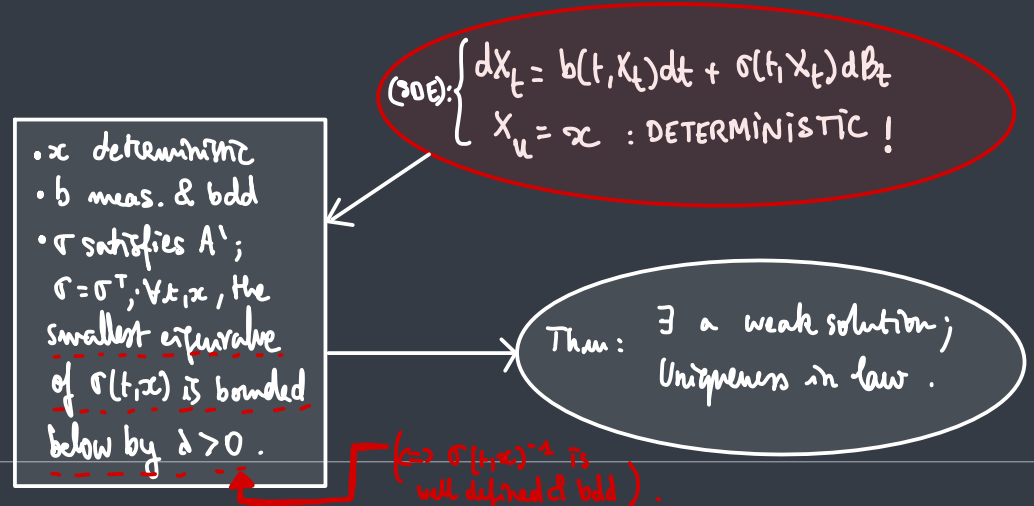 (SDE): { dX_t = b(t, X_t)dt + σ(t, X_t)dB_t
X_u = x : DETERMINISTIC !
• x deterministic
• b meas. & bdd
• σ satisfies A';
σ = σ^T, ∀t,x, the
smallest eigenvalue
of σ(t,x) is bounded
below by λ > 0 .
Thm: ∃ a weak solution;
Uniqueness in law .
(<=> σ(t,x)^-1 is
well defined & bdd ) .